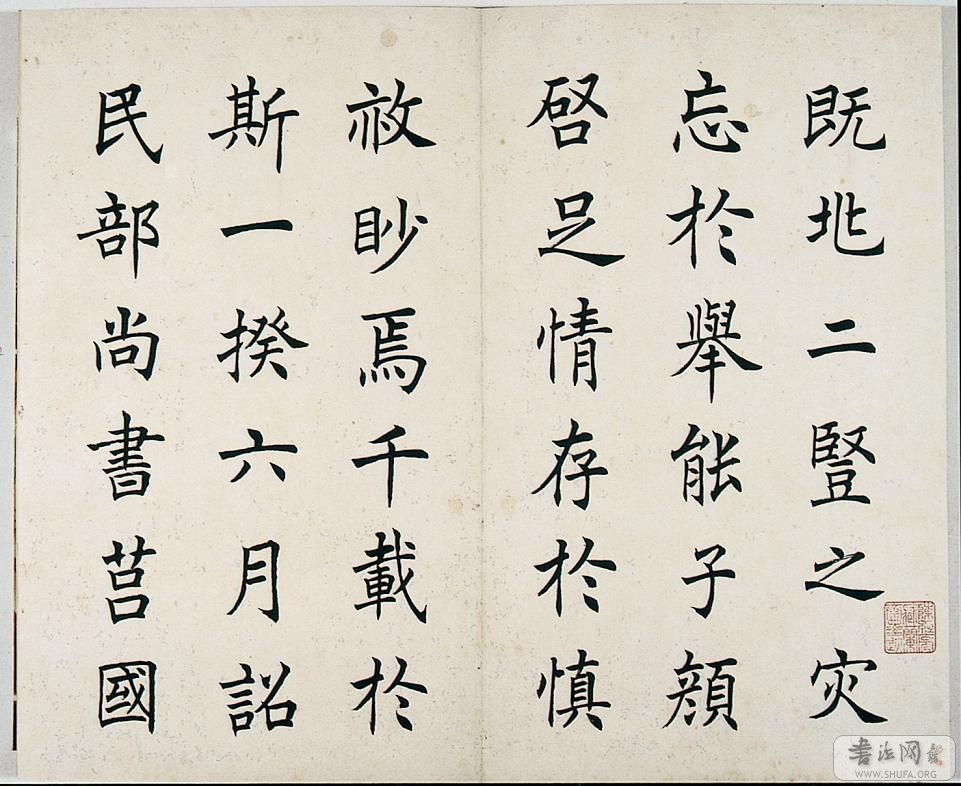 既兆二豎之灾
忘於舉能子顔
啓足情存於慎
赦眇焉千載於
斯一揆六月詔
民部尚書莒國
書法网
WWW.SHUFA.ORG